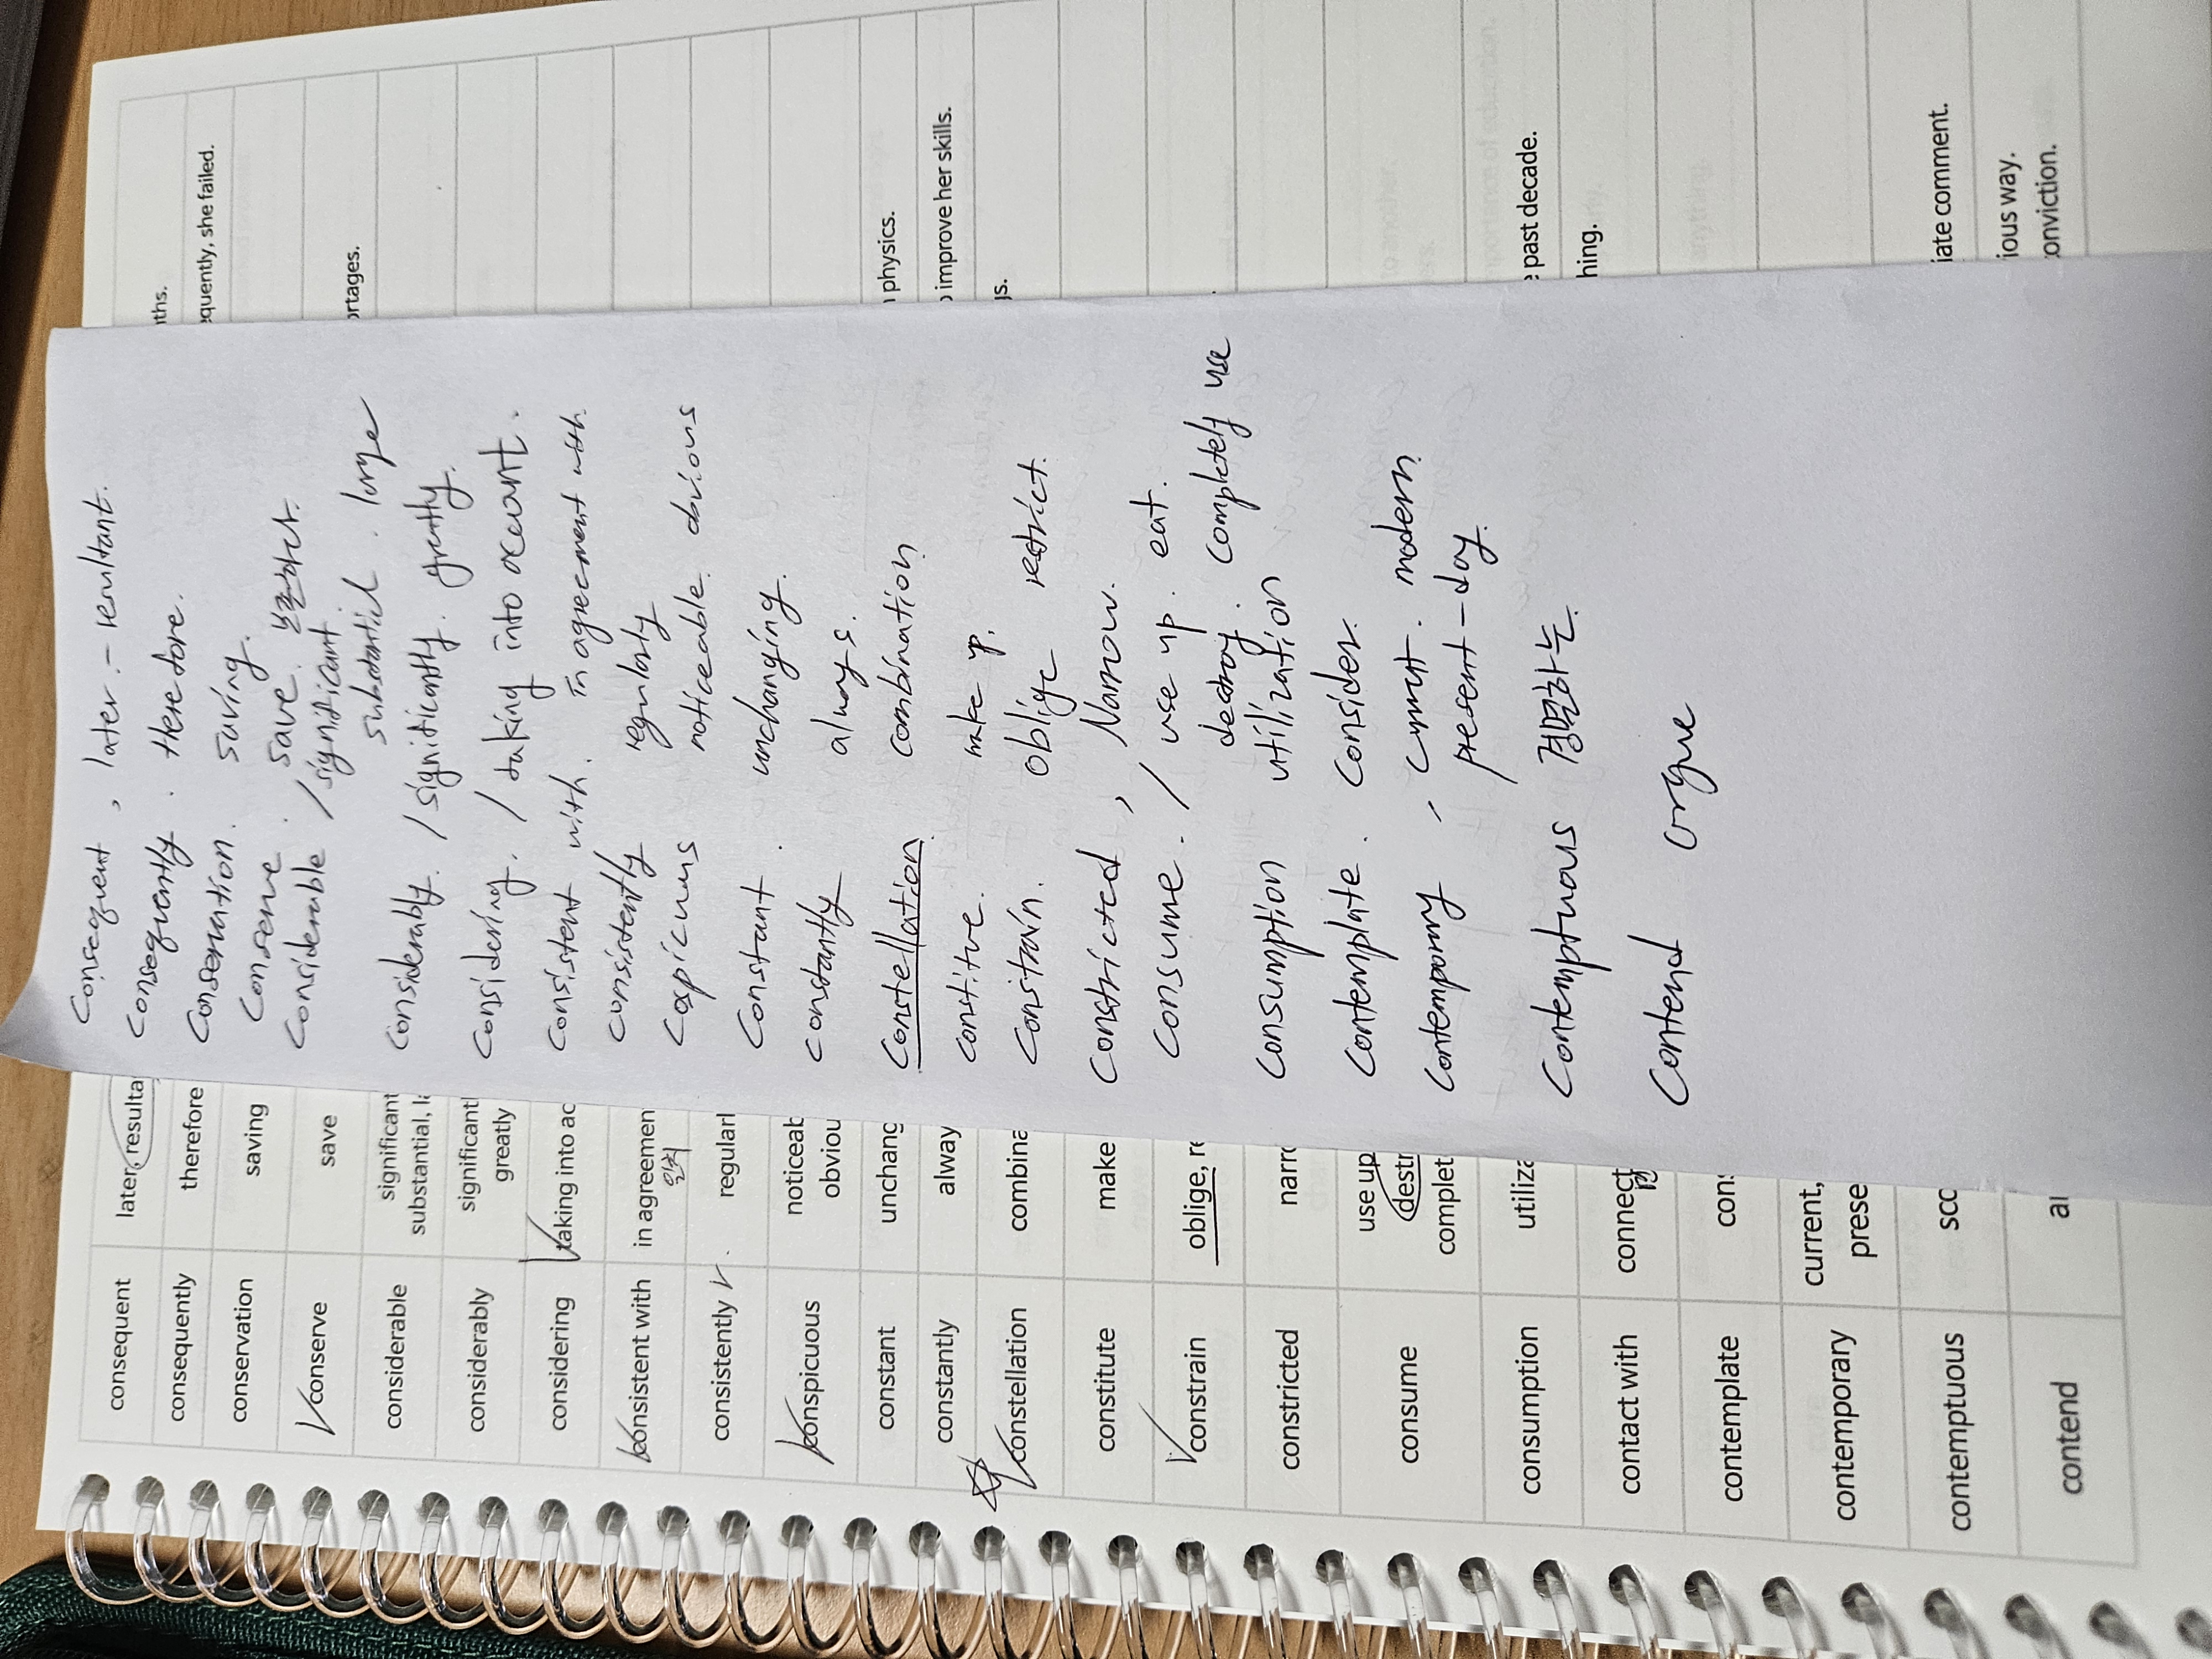 consequent later, resulta
consequently therefore
conservation saving
conserve save
considerable significant
substantial, la
considerably significantl
greatly
considering taking into ac
consistent with in agreemen
일치
consistently regularl
conspicuous noticeab
obviou
constant unchang
constantly alway
constellation combina
constitute make
constrain oblige, re
constricted narro
consume use up
destr
complet
consumption utiliza
contact with connect
contemplate cons
contemporary current,
prese
contemptuous sco
contend ar
Consequent, later. - resultant.
Consequently. therefore.
Conservation. saving.
Conserve. save. 보존하다.
Considerable / significant
substantial. large
Considerably. / significantly. greatly.
Considering. / taking into account.
Consistent with. in agreement with.
Consistently regularly
Cospicuous noticeable. obvious
Constant. unchanging.
constantly always.
Constellation. combination.
constitue. make up.
Constrain. oblige restrict.
Constricted, Narrow.
Consume. / use up. eat.
destroy. completely use
Consumption utilization
Contemplate. Consider.
Contemporary, current. modern.
present-day.
Contemptuous 경멸하는.
Contend argue
ths.
equently, she failed.
ortages.
physics.
o improve her skills.
gs.
e past decade.
hing.
iate comment.
ious way.
onviction.